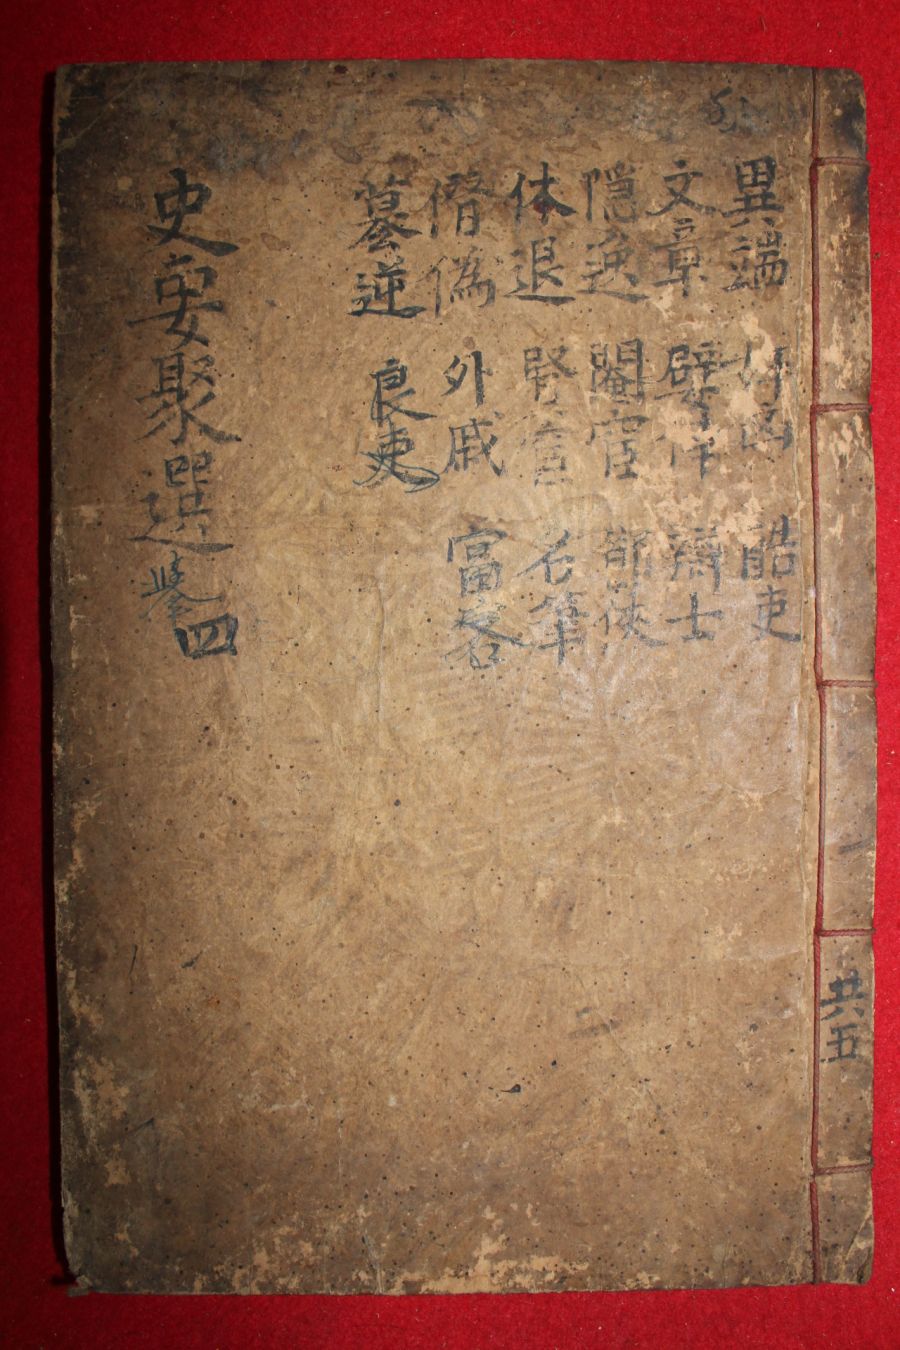 異端 奸凶 酷吏
文章 嬖倖 辯士
隠逸 閹宦 節俠
休退 賢宦 名筆
僭偽 外戚 富客
簒逆 良吏
史要聚選 卷四
共五